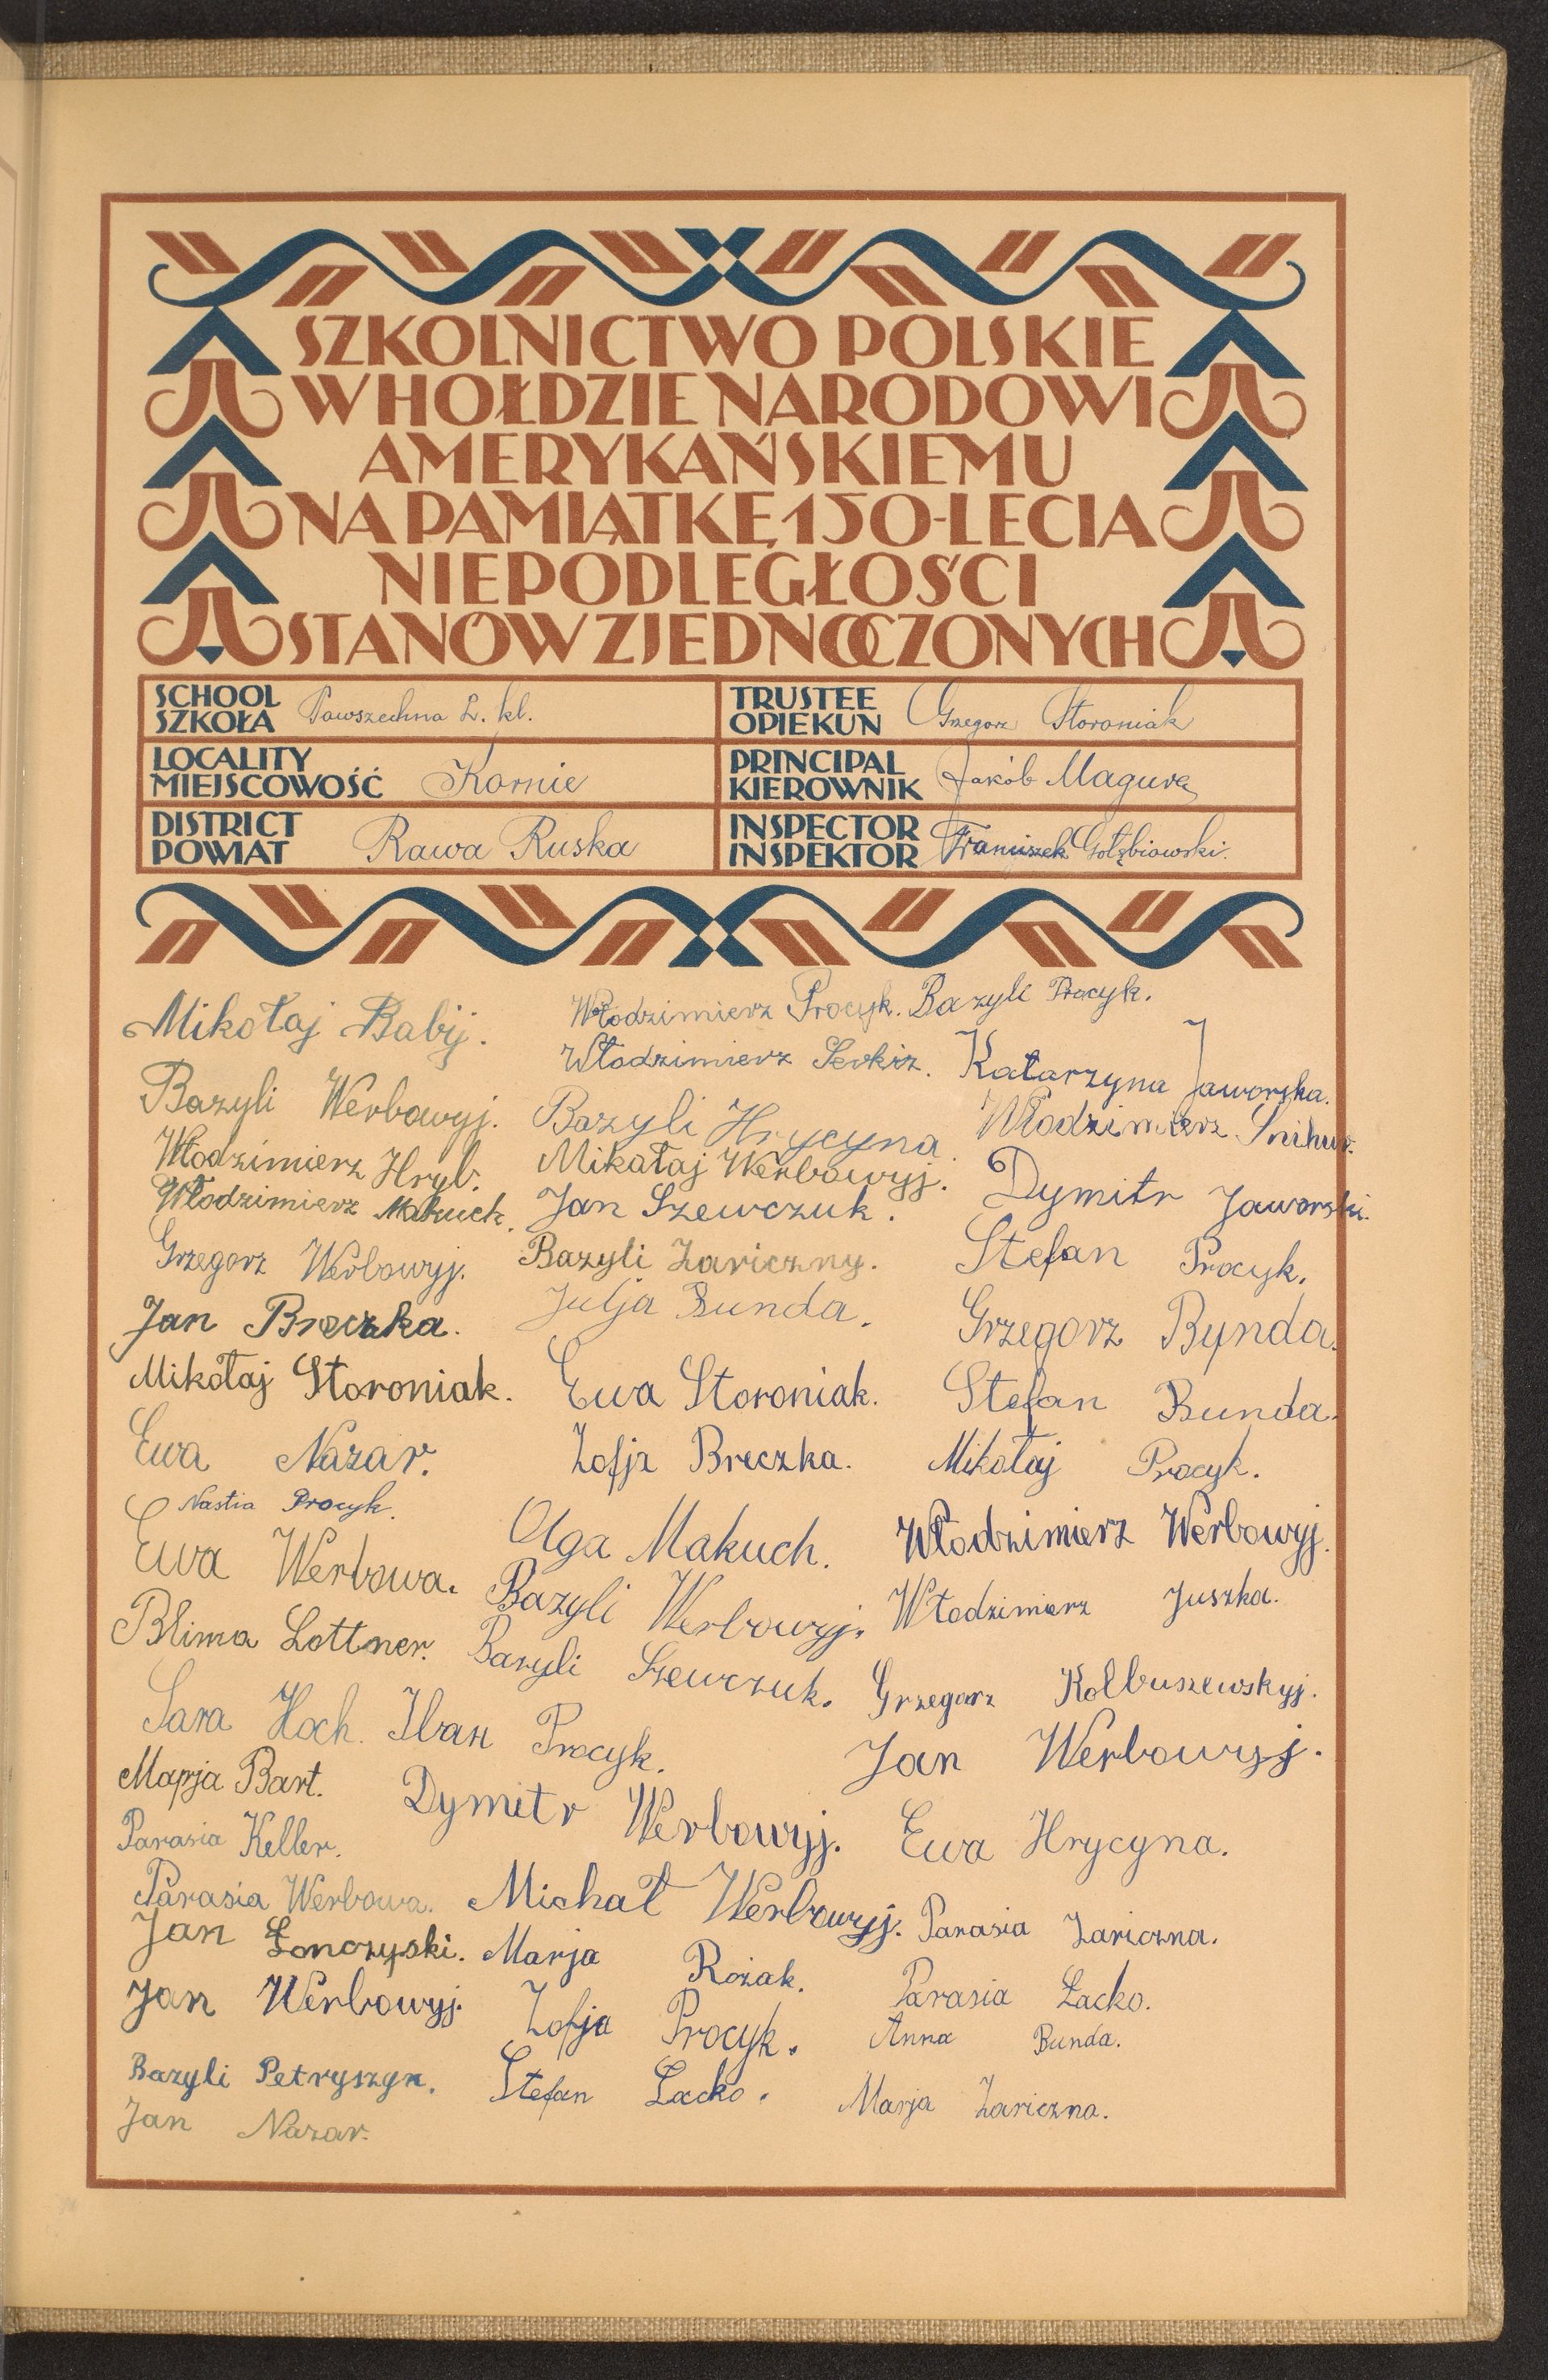 SZKOLNICTWO POLSKIE
W HOŁDZIE NARODOWI
AMERYKAŃSKIEMU
NA PAMIĄTKĘ 150-LECIA
NIEPODLEGŁOŚCI
STANÓW ZJEDNOCZONYCH
SCHOOL
SZKOŁA Powszechna 2. kl.
TRUSTEE
OPIEKUN Grzegorz Storoniak
LOCALITY
MIEJSCOWOŚĆ Kornie
PRINCIPAL
KIEROWNIK Jakób Magura
DISTRICT
POWIAT Rawa Ruska
INSPECTOR
INSPEKTOR Franciszek Gołębiowski.
Mikołaj Babij.
Bazyli Werbowyj.
Włodzimierz Hryb.
Włodzimierz Makuch.
Grzegorz Werbowyj.
Jan Breczka.
Mikołaj Storoniak.
Ewa Nazar.
Nastia Procyk.
Ewa Werbowa.
Blima Lottner.
Sara Hoch.
Marja Bart.
Parasia Keller.
Parasia Werbowa.
Jan Łonczyski.
Jan Werbowyj.
Bazyli Petryszyn.
Jan Nazar.
Włodzimierz Procyk. Bazyli Procyk.
Włodzimierz Serkiz.
Bazyli Hrycyna.
Mikałaj Werbowyj.
Jan Szewczuk.
Bazyli Zariczny.
Julja Bunda.
Ewa Storoniak.
Zofja Breczka.
Olga Makuch.
Bazyli Werbowyj.
Bazyli Szewczuk.
Iwan Procyk.
Dymitr Werbowyj.
Michał Werbowyj.
Marja Rożak.
Zofja Procyk.
Stefan Łacko.
Katarzyna Jaworska.
Włodzimierz Snihur.
Dymitr Jaworski.
Stefan Procyk.
Grzegorz Bynda.
Stefan Bunda.
Mikołaj Procyk.
Włodzimierz Werbowyj.
Włodzimierz Juszka.
Grzegorz Kolbuszewskyj.
Jan Werbowyj.
Ewa Hrycyna.
Parasia Zariczna.
Parasia Łacko.
Anna Bunda.
Marja Zariczna.